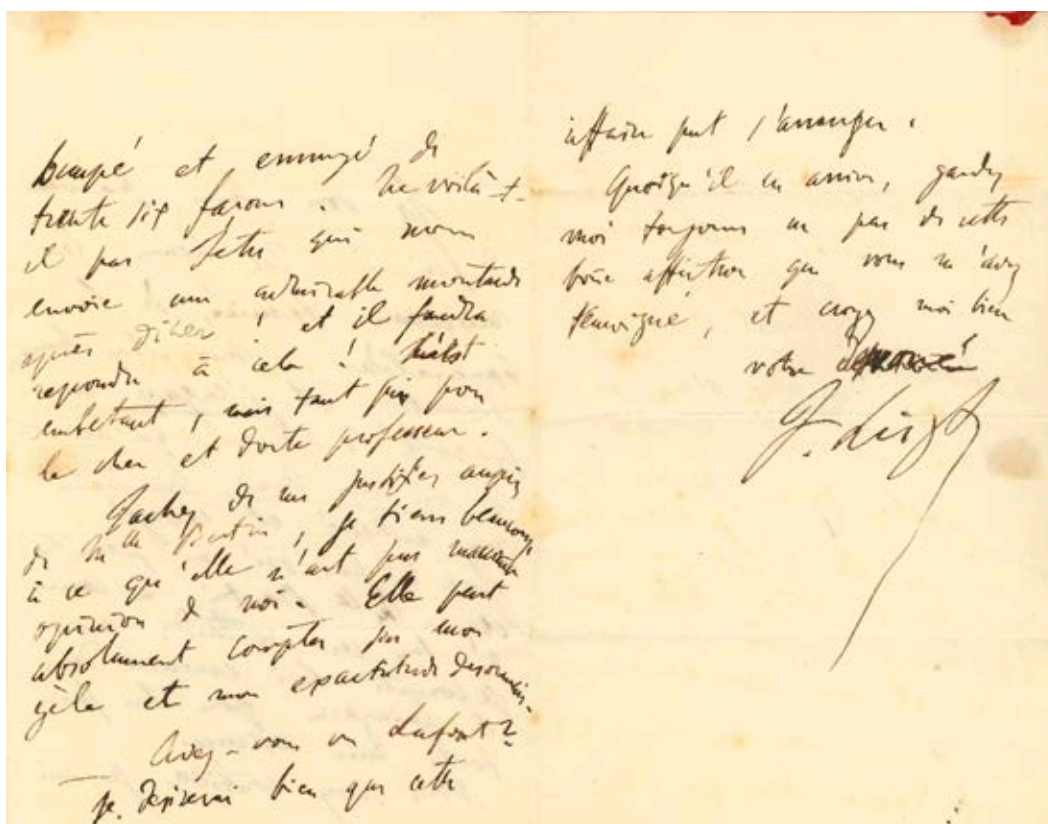 et ennuyé de
trente six façons. Ne voilà-t-
il pas Fétis qui nous
envoie une admirable moutarde
après dîner ! et il faudra
répondre à cela ! c'est
embêtant, mais tant pis pour
le cher et docte professeur.
Tachez de me justifier auprès
de Mlle Bertin, je tiens beaucoup
à ce qu'elle n'ait pas mauvaise
opinion de moi. Elle peut
absolument compter sur mon
zèle et mon exactitude désormais.
Avez-vous vu Lafont?
Je désirerai bien que cette
affaire put s'arranger.
Quoiqu'il en arrive, gardez
moi toujours un peu de cette
bonne affection que vous m'avez
témoigné, et croyez moi bien
votre
F. Liszt